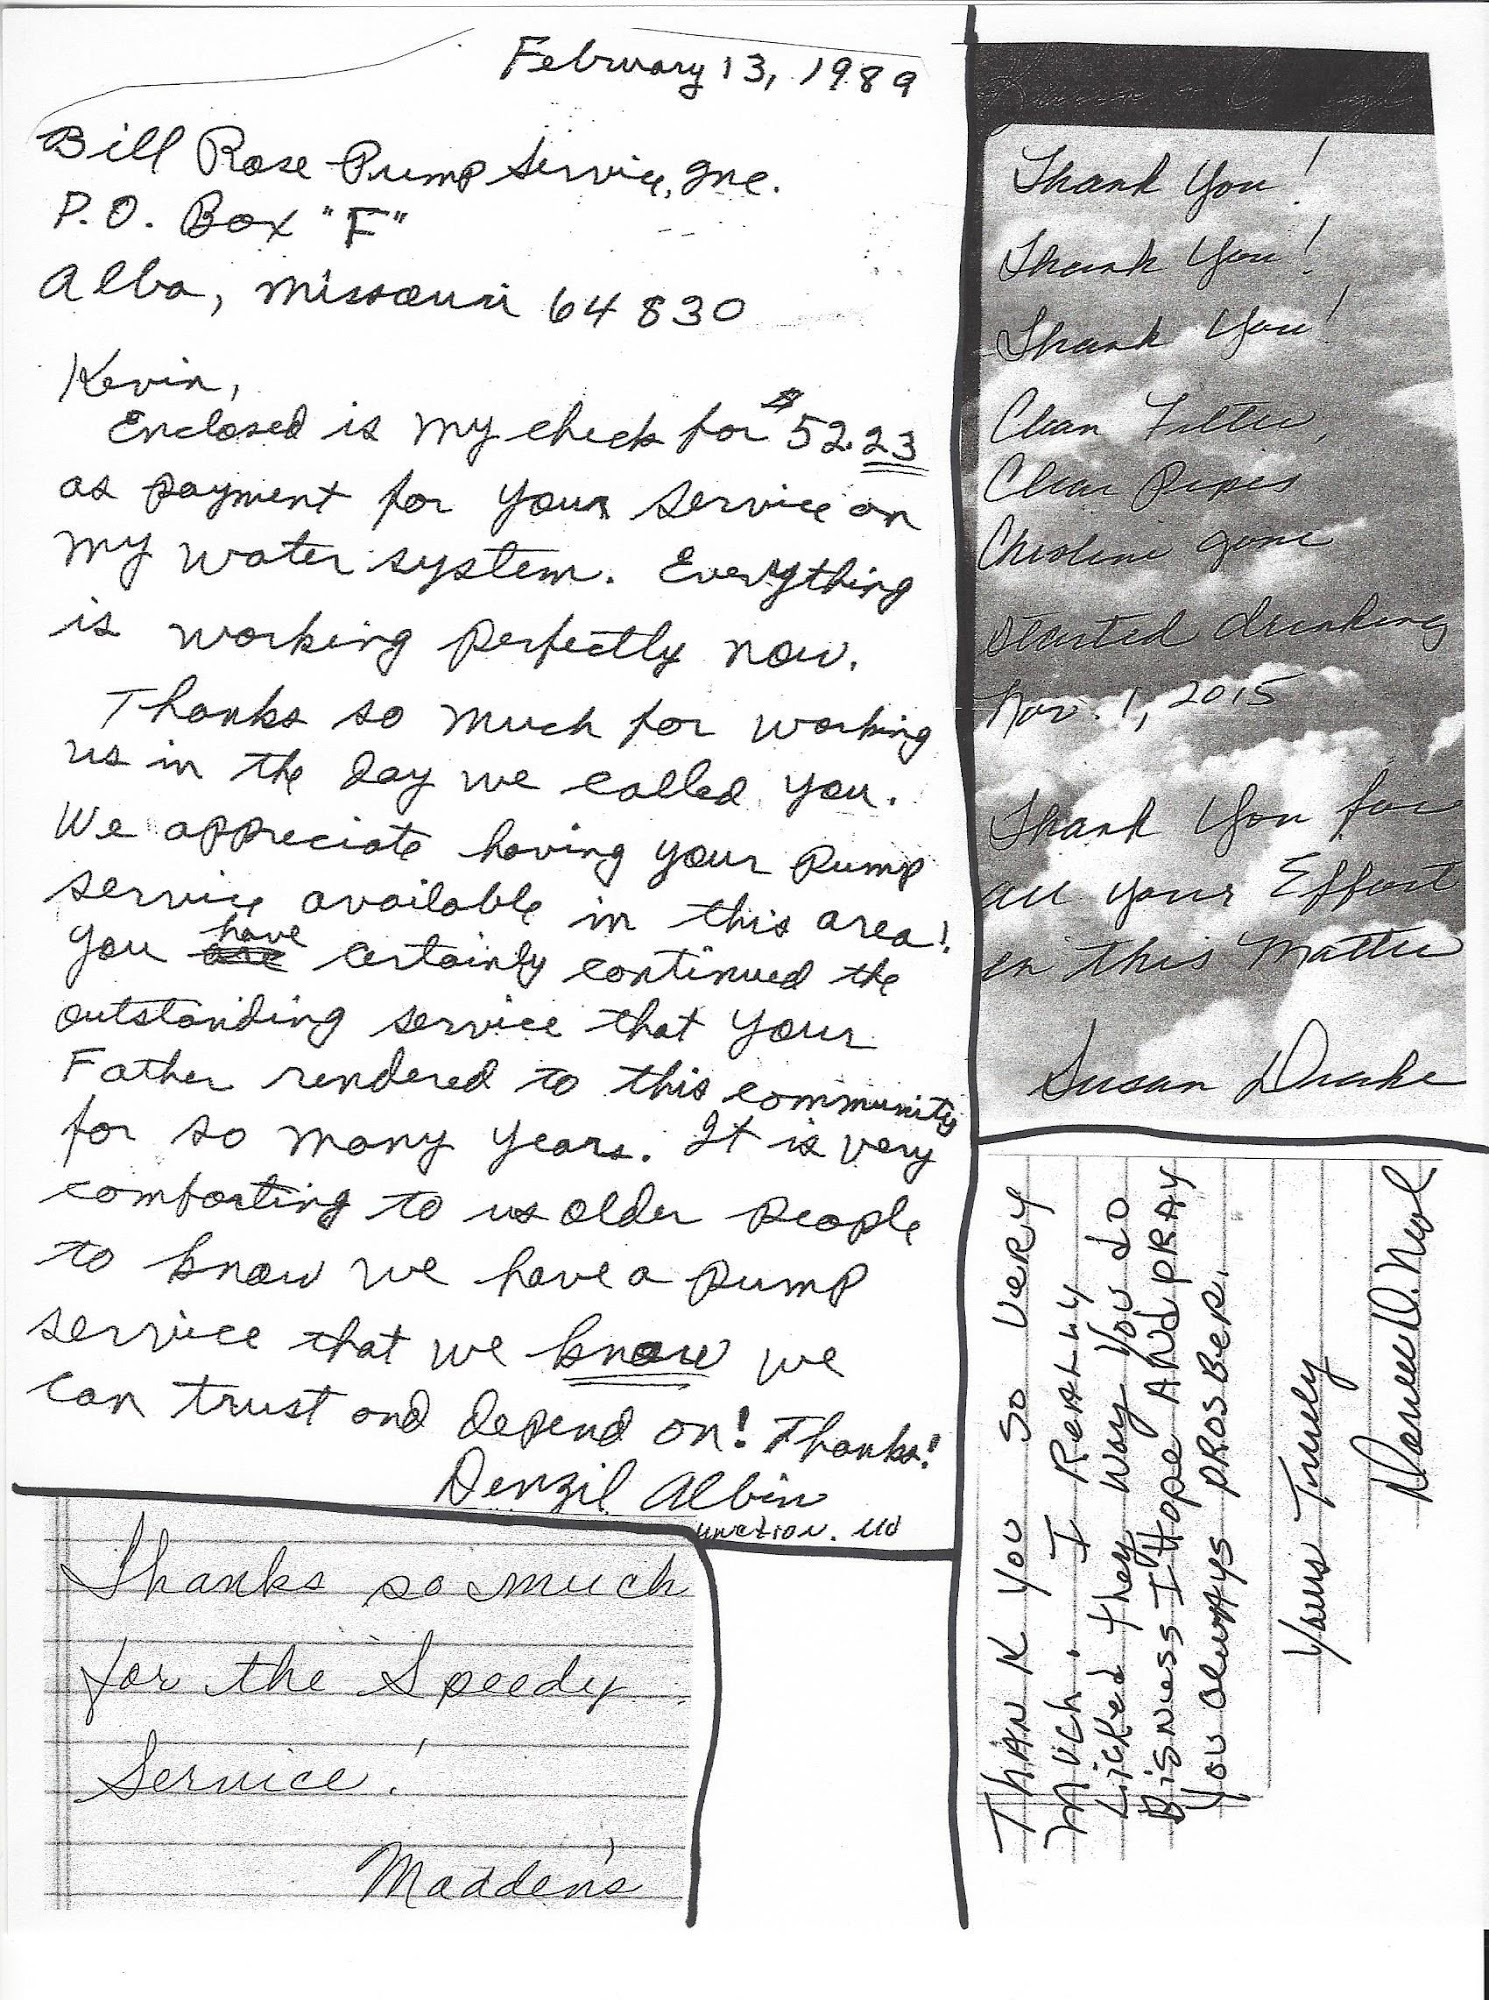 February 13, 1989
Bill Rose Pump Service, Inc.
P.O. Box "F"
Alba, Missouri 64830
Kevin,
Enclosed is my check for $52.23
as payment for your service on
my water system. Everything
is working perfectly now.
Thanks so much for working
us in the day we called you.
We appreciate having your pump
service available in this area!
You have certainly continued the
outstanding service that your
Father rendered to this community
for so many years. It is very
comforting to us older people
to know we have a pump
service that we know we
can trust and depend on! Thanks!
Denzil Albin
unction. Mo
Thanks so much
for the Speedy
Service!
Madden's
Thank You!
Thank You!
Thank You!
Clean Filter,
Clear Pipes
Chroline gone
started drinking
Nov. 1, 2015
Thank You for
all your Effort
in this Matter
Susan Drake
THANK YOU SO VERY
MUCH. I REALLY
LiCKed they WAy You do
BisNess I HOpe ANd pRAY
You AlwAys pROSBER.
Yours Truely